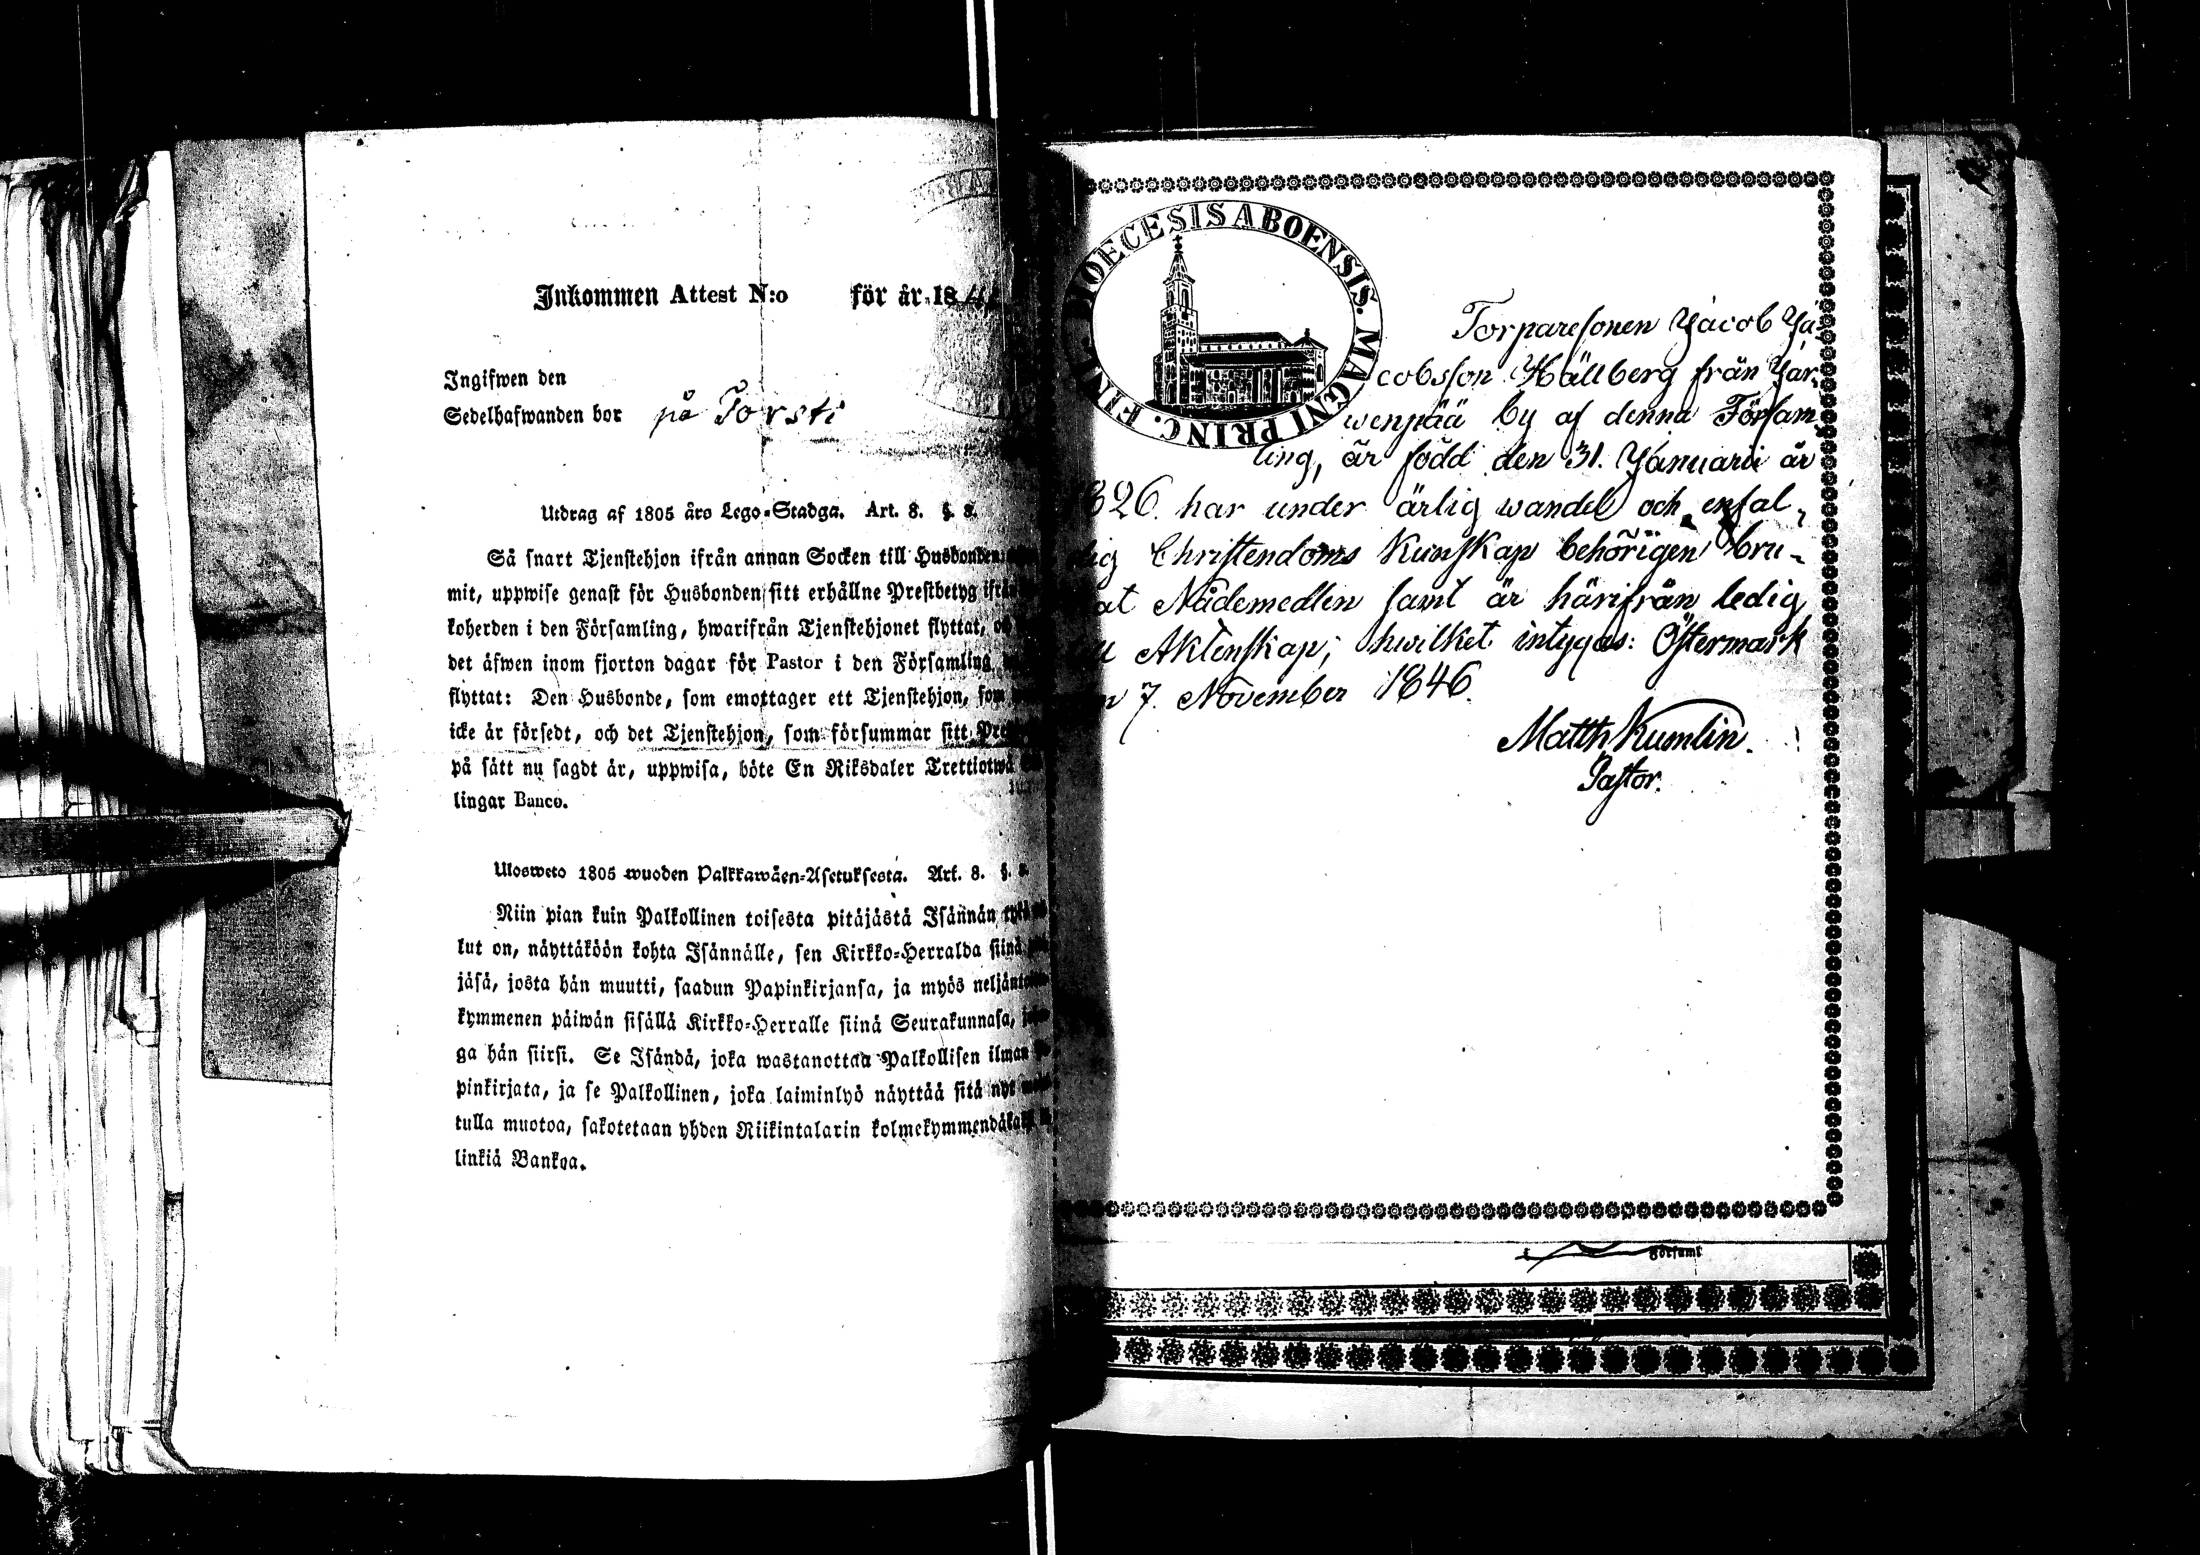 Inkommen Attest N:o för år 18
Ingifwen den
Sedelhafwanden bor på Torsti
Utdrag af 1805 års Lego-Stadga. Art. 8. §. 8.
Så snart Tjenstehjon ifrån annan Socken till Husbonden
mit, uppwise genast för Husbonden sitt erhållne Prestbetyg ifrån
koherden i den Församling, hwarifrån Tjenstehjonet flyttat,
det äfwen inom fjorton dagar för Pastor i den Församling
flyttat: Den Husbonde, som emottager ett Tjenstehjon, som
icke är försedt, och det Tjenstehjon, som försummar sitt
på sätt nu sagdt är, uppwisa, böte En Riksdaler Trettiotwå
lingar Banco.
Ulosweto 1805 wuoden Palkkawäen-Asetuksesta. Art. 8. §. 8.
Niin pian kuin Palkollinen toisesta pitäjästä Isännän
lut on, näyttäköön kohta Isännälle, sen Kirkko-Herralda siinä
jäsä, josta hän muutti, saadun Papinkirjansa, ja myös
kymmenen päiwän sisällä Kirkko-Herralle siinä Seurakunnasa,
ga hän siirsi. Se Isändä, joka wastanottaa Palkollisen ilman
pinkirjata, ja se Palkollinen, joka laiminlyö näyttää sitä nyt
tulla muotoa, sakotetaan yhden Riikintalarin
linkiä Bankoa.
DIOECESIS ABOENSIS. MAGNI PRINC. FINL.
Torparesonen Jacob Ja-
cobsson Hällberg från Jär-
wenpää by af denna Försam
ling, är född den 31. Januarii år
1826. har under ärlig wandel och enfal-
dig Christendoms Kunskap behörigen bru-
kat Nådemedlen samt är härifrån ledig
till Äktenskap; hwilket intygas: Östermark
den 7. November 1846.
Matth Kumlin.
Pastor.